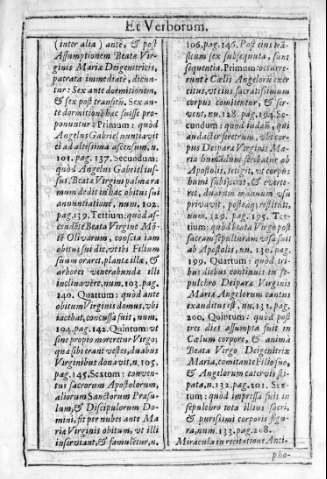 Et Verborum.
(inter alia) ante, & post
Assumptionem Beatæ Vir-
ginis Mariæ Deigenitricis,
patrata immediatè, dicun-
tur: Sex ante dormitionem,
& sex post transitū. Sex an-
te dormitionē hæc fuisse pro-
ponuntur: Primum: quòd
Angelus Gabriel nuntiavit
ei ad altissima ascensum, n.
101. pag. 137. Secundum:
quòd Angelus Gabriel ius-
sus, Beatæ Virgini palmarā
mum dedit in hac obitus sui
annuntiatione, num. 102.
pag. 139. Tertium: quòd as-
cendēte Beatâ Virgine Mō-
tē Olivarum, conscia iam
obitus sui divitis, vt ibi Filium
suum oraret, planta illæ, &
arbores venerabunde illi
inclinavêre, num. 103. pag.
140. Quartum: quòd ante
obitum Virginis domus, vbi
iacebat, concussa fuit, num.
104. pag. 142. Quintum: vt
sine proprio moreretur Virgo;
quæ sibi erant vestes, duabus
Virginibus donavit, n. 105.
pag. 145. Sextum: conven-
tus sacrorum Apostolorum,
aliorum Sanctorum Præsu-
lum, & Discipulorum Do-
mini, fit per nubes ante Ma-
riæ Virginis obitum, vt illi
inserviant, & famulētur, n.
106. pag. 146. Post eius trā-
situm sex subsequuta, sunt
sequentia. Primum: occurre-
runt è Cælis Angelorū exer-
citus, vt eius sacratissimum
corpus comitentur, & ser-
vent, nu. 128. pag. 194. Se-
cundum: quòd iudæi, qui
audacter venerunt, vbi cor-
pus Deiparæ Virginis Ma-
riæ humandum ferebatur ab
Apostolis, tetigit, vt corpus
humi subiiceret, & everte-
ret, duarum manuum usu
privavit, posteaq; restituit,
num. 129. pag. 195. Ter-
tium: quòd beata Virgo post
sacram sepulturam visa fuit
ab Apostolis, nu. 130. pag.
199. Quartum: quòd tri-
bus diebus continuis in se-
pulchro Deiparæ Virginis
Mariæ Angelorum cantus
exauditus est, nu. 131. pag.
200. Quintum: quòd post
tres dies assumpta fuit in
Cælum corpore, & animâ
Beata Virgo Deigenitrix
Maria, comitante Filio suo,
& Angelorum catervis sti-
pata, n. 132. pag. 201. Sex-
tum: quòd impressa fuit in
sepulchro tota illius sacri,
& purissimi corporis figu-
ra, num. 133. pag. 208.
Miracula in recitatione Anti-
pho-